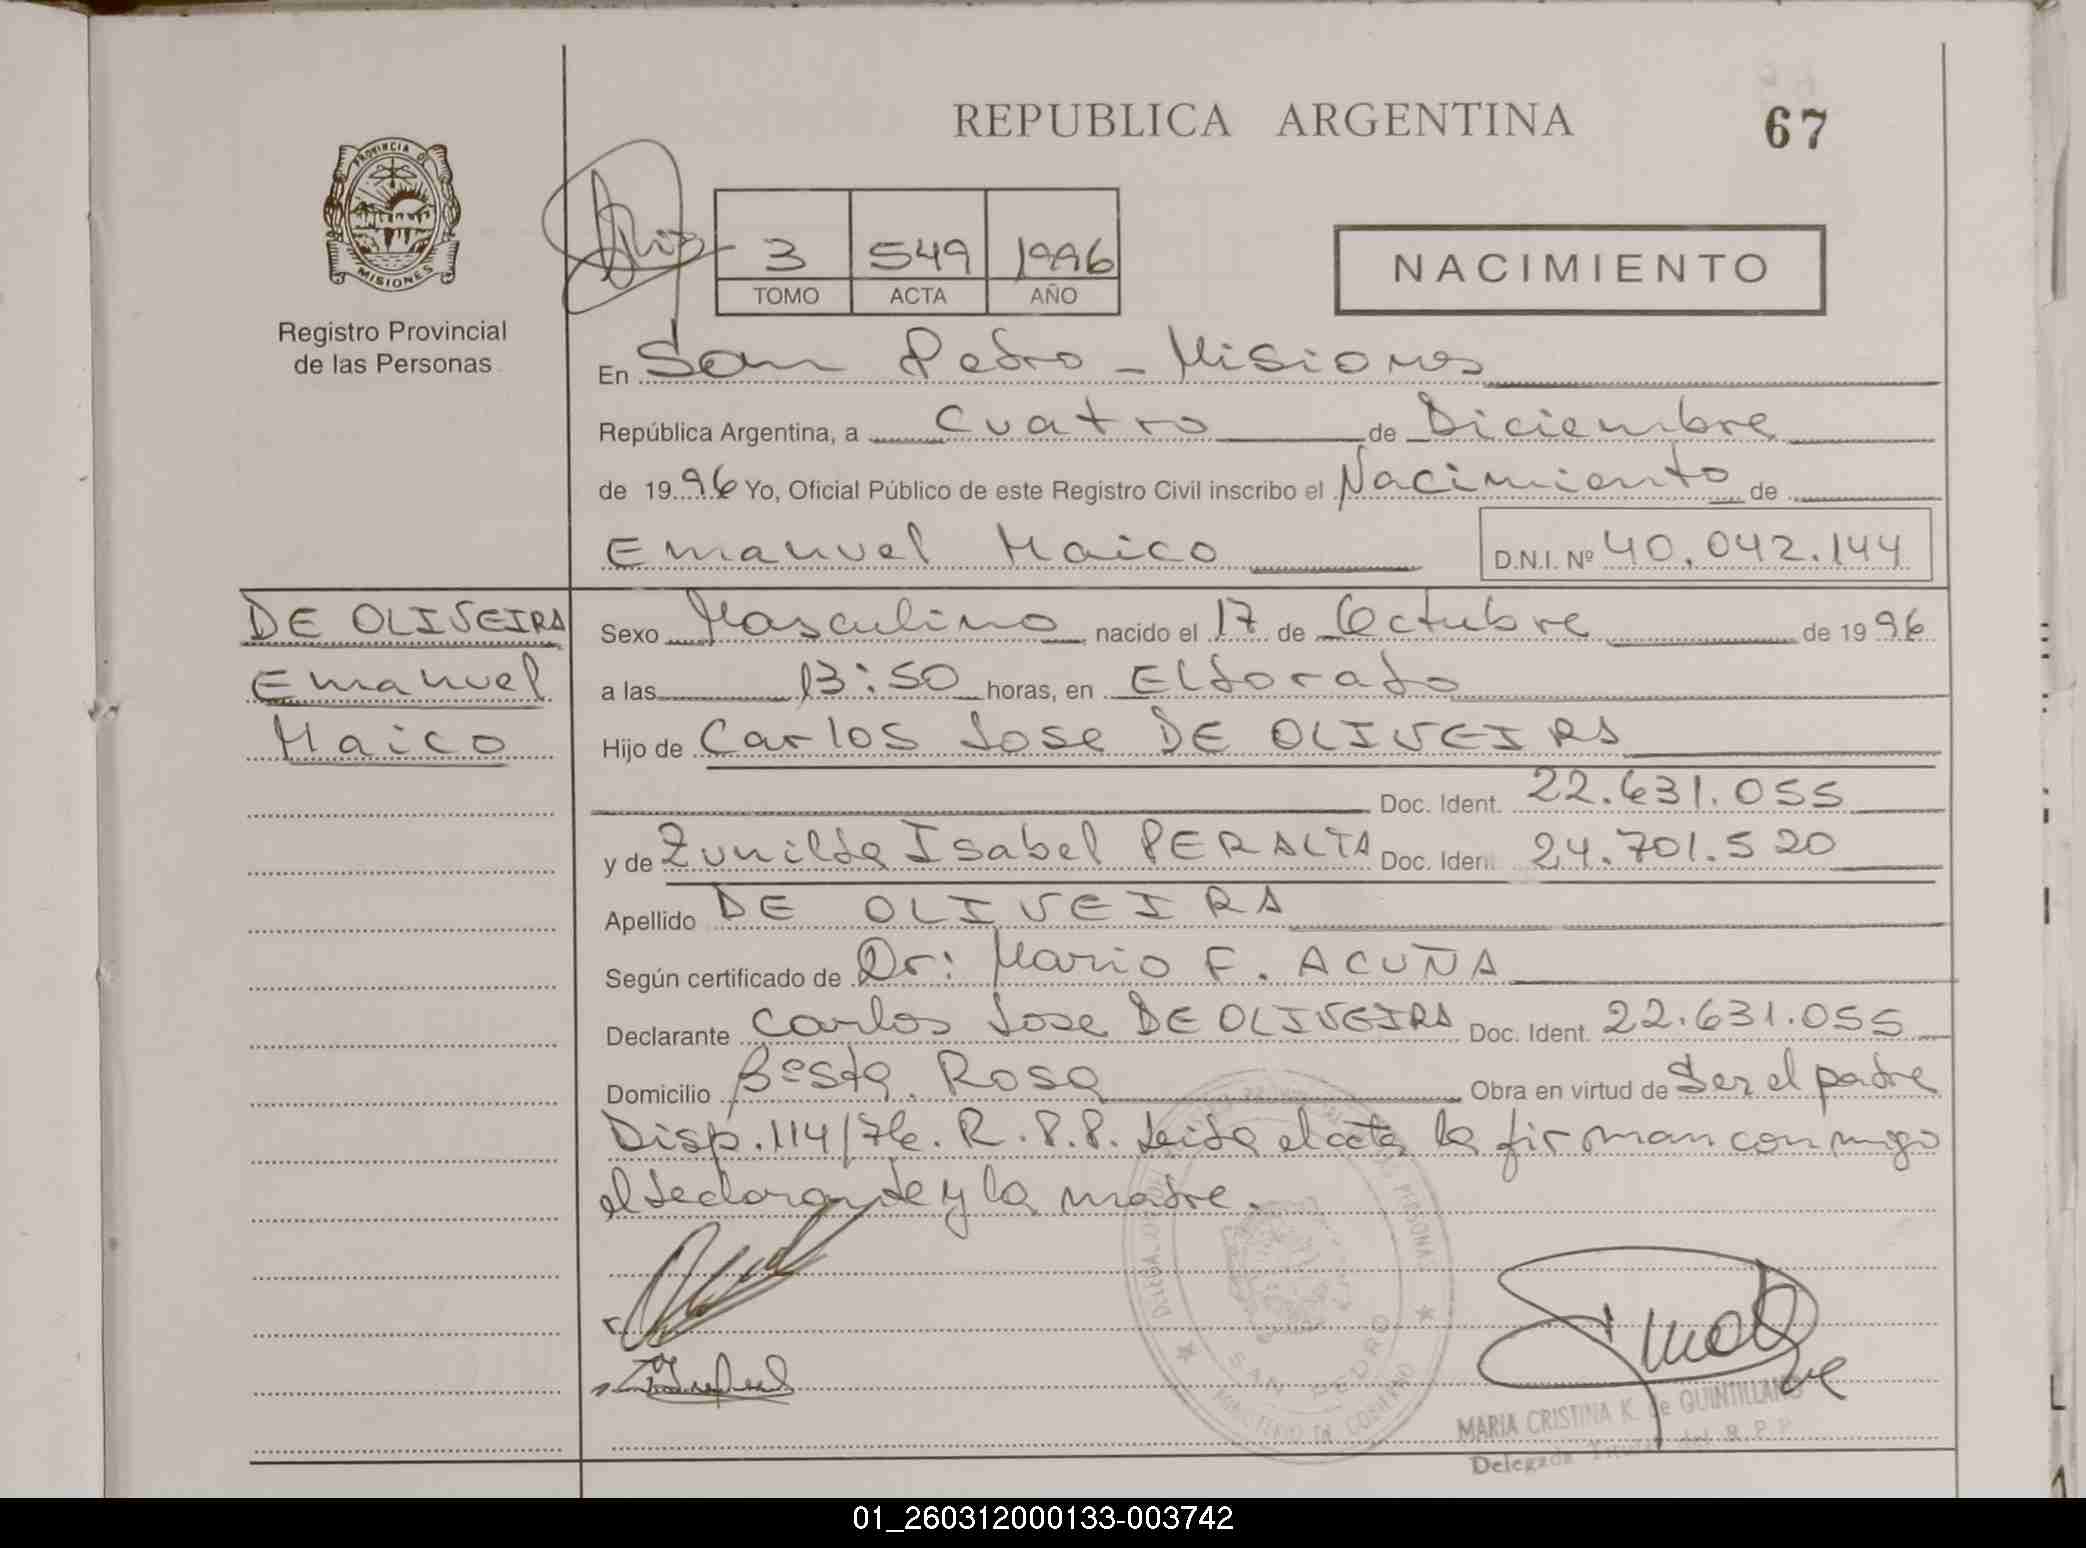 REPUBLICA ARGENTINA
67
PROVINCIA DE
MISIONES
Registro Provincial
de las Personas
3 549 1996
TOMO ACTA AÑO
NACIMIENTO
En San Pedro - Misiones
República Argentina, a Cuatro de Diciembre
de 1996 Yo, Oficial Público de este Registro Civil inscribo el Nacimiento de
Emanuel Maico D.N.I. Nº 40.042.144
DE OLIVEIRA
Emanuel
Maico
Sexo Masculino nacido el 17 de Octubre de 1996
a las 13:50 horas, en Eldorado
Hijo de Carlos Jose DE OLIVEIRA
Doc. Ident. 22.631.055
y de Zunilda Isabel PERALTA Doc. Iden. 24.701.520
Apellido DE OLIVEIRA
Según certificado de Dr: Mario F. ACUÑA
Declarante Carlos Jose DE OLIVEIRA Doc. Ident. 22.631.055
Domicilio Bº Sta. Rosa Obra en virtud de Ser el padre
Disp. 114/76. R.P.P. Leida el acta, la firman conmigo
el declarante y la madre.
SAN PEDRO
MINISTERIO DE GOBIERNO
MARIA CRISTINA K. de QUINTILLANO
Delegada Titular del R.P.P
01_260312000133-003742